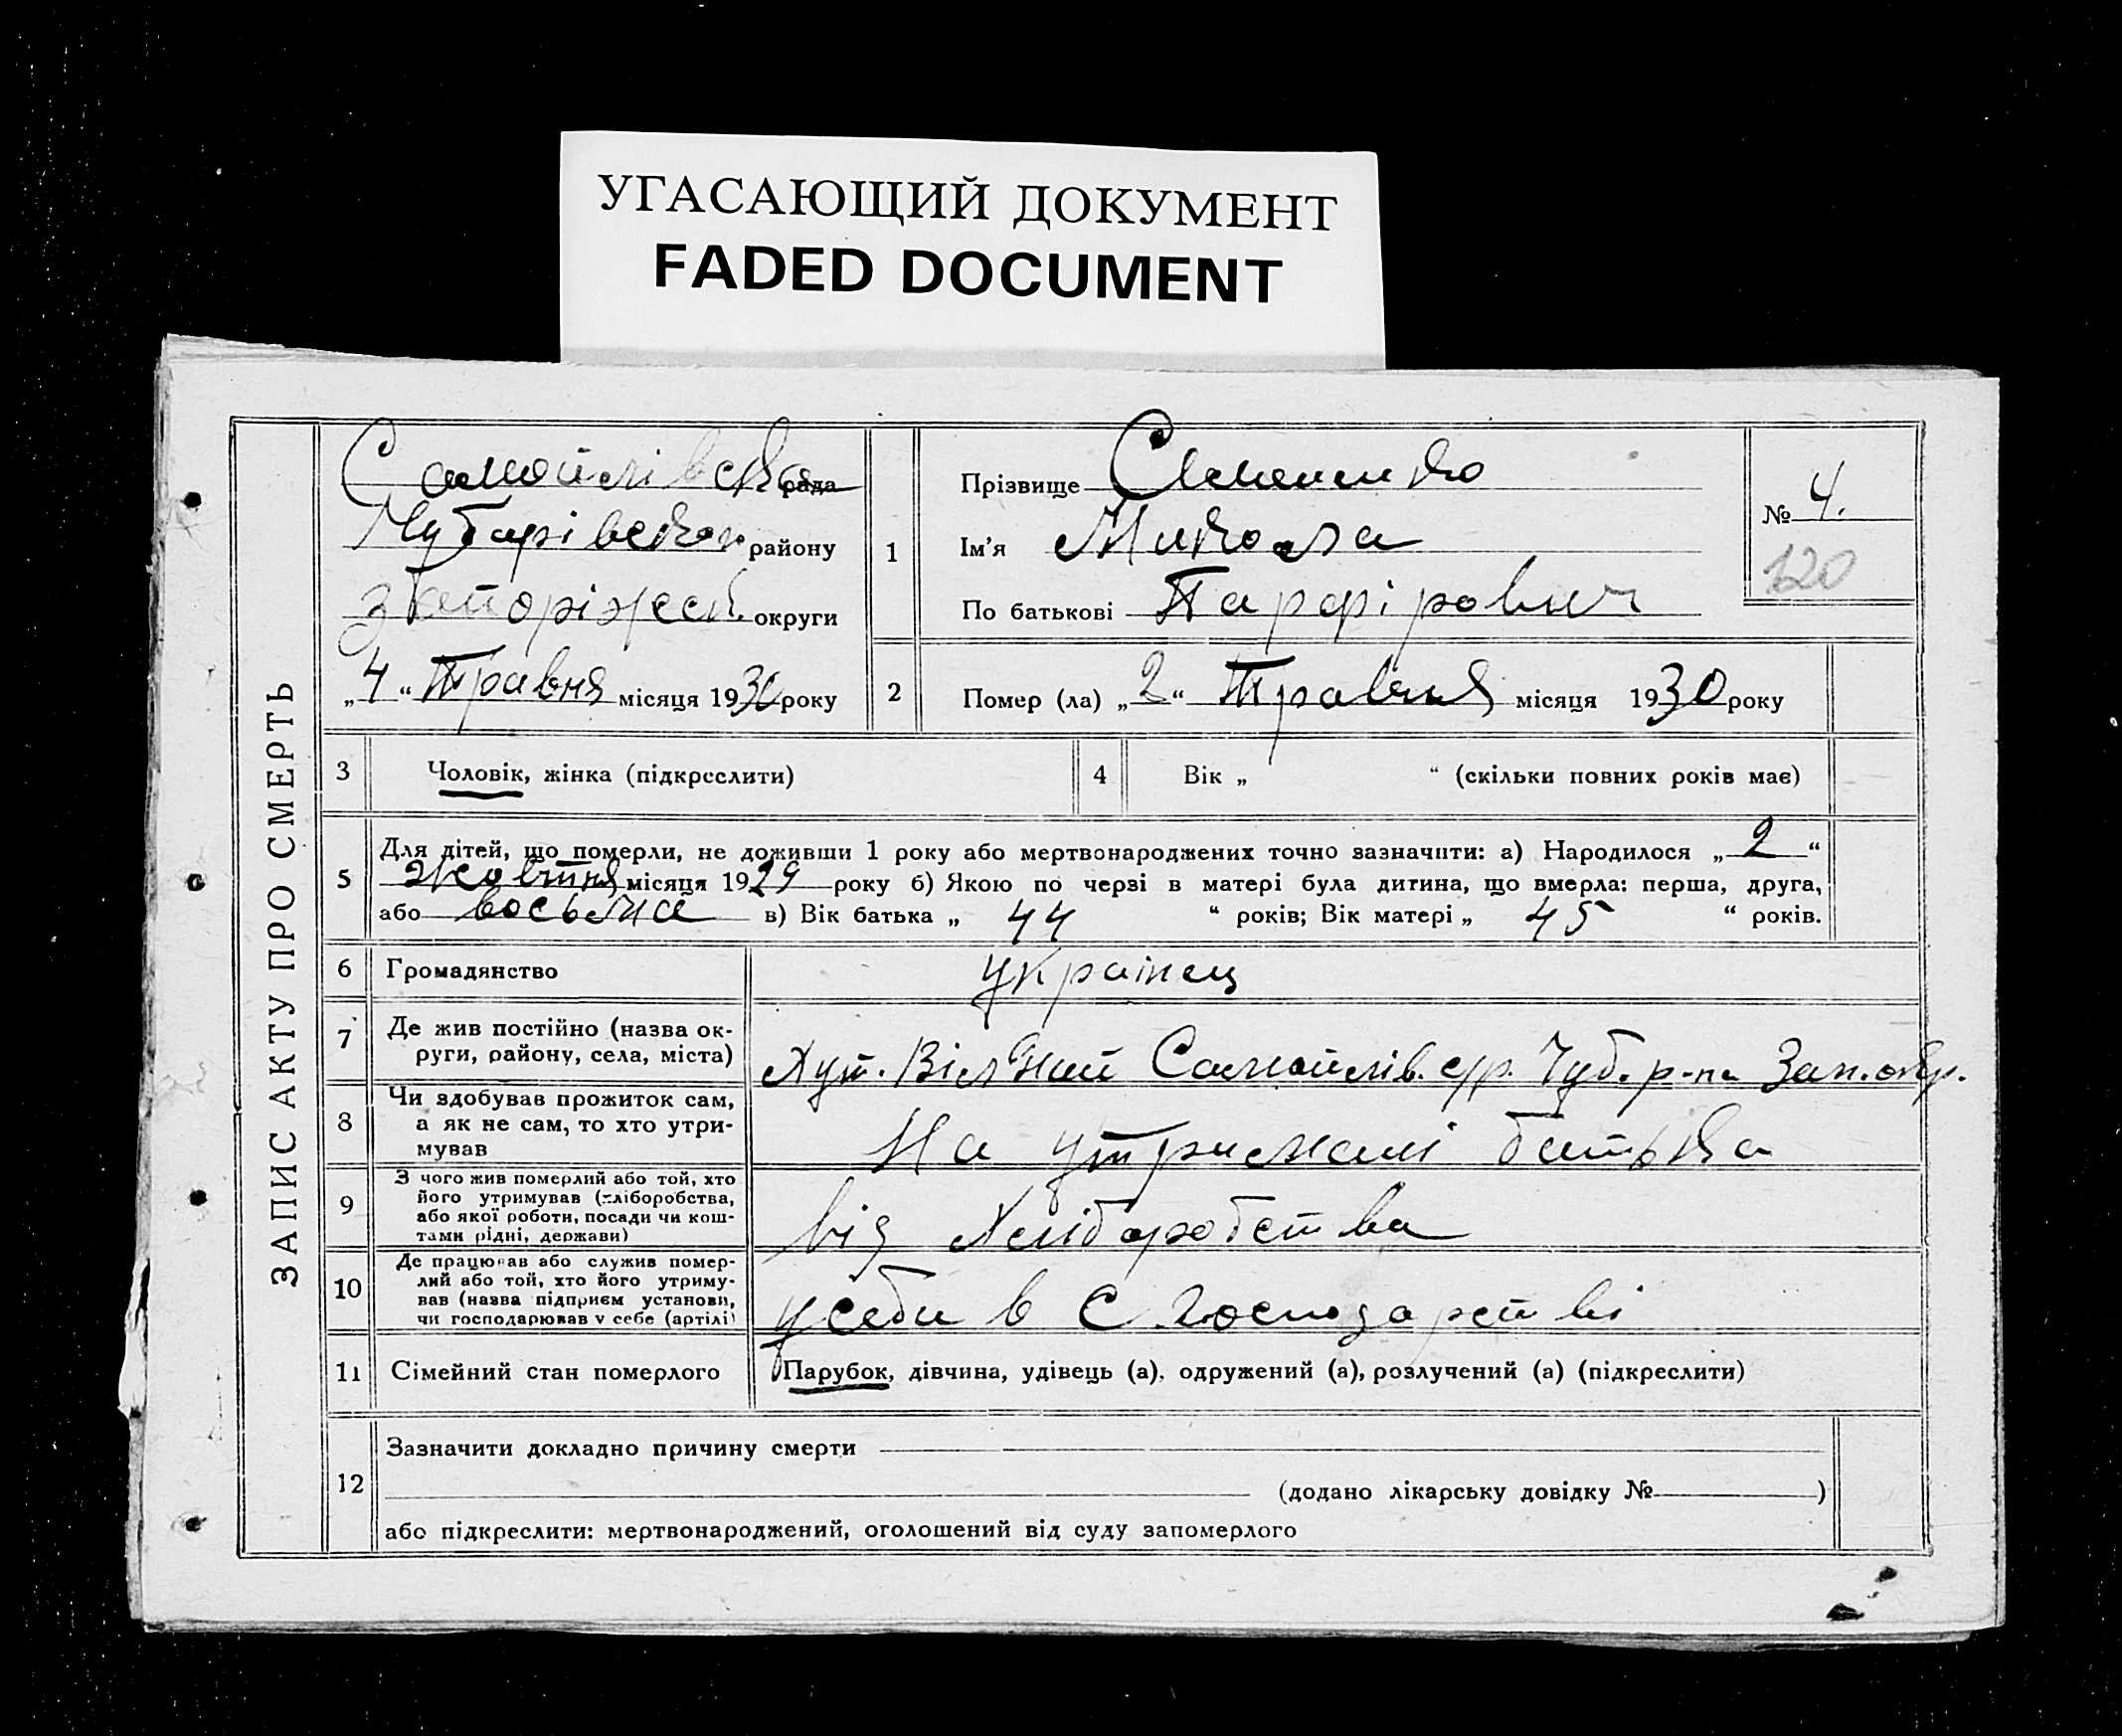 УГАСАЮЩИЙ ДОКУМЕНТ
FADED DOCUMENT
ЗАПИС АКТУ ПРО СМЕРТЬ
Самойлівська рада
Чубарівського району
Запоріжськ. округи
„4“ Травня місяця 1930 року
1
Прізвище Семененко
Ім'я Микола
По батькові Парфірович
№ 4.
120
2
Помер (ла) „2“ Травня місяця 1930 року
3
Чоловік, жінка (підкреслити)
4
Вік „ “ (скільки повних років має)
5
Для дітей, що померли, не доживши 1 року або мертвонароджених точно зазначити: а) Народилося „2“
Жовтня місяця 1929 року б) Якою по черзі в матері була дитина, що вмерла: перша, друга,
або восьма в) Вік батька „ 44 “ років; Вік матері „ 45 “ років.
6
Громадянство
українец
7
Де жив постійно (назва ок-
руги, району, села, міста)
Хут. Вільний Самойлів. с/р. Чуб. р-на Зап. окр.
8
Чи здобував прожиток сам,
а як не сам, то хто утри-
мував
На утримані батька
9
З чого жив померлий або той, хто
його утримував (хліборобства,
або якої роботи, посади чи кош-
тами рідні, держави)
від Хліборобства
10
Де працював або служив помер-
лий або той, хто його утриму-
вав (назва підприєм установи,
чи господарював у себе (артілі)
у себе в С. господарстві
11
Сімейний стан померлого
Парубок, дівчина, удівець (а), одружений (а), розлучений (а) (підкреслити)
12
Зазначити докладно причину смерти
(додано лікарську довідку № )
або підкреслити: мертвонароджений, оголошений від суду запомерлого